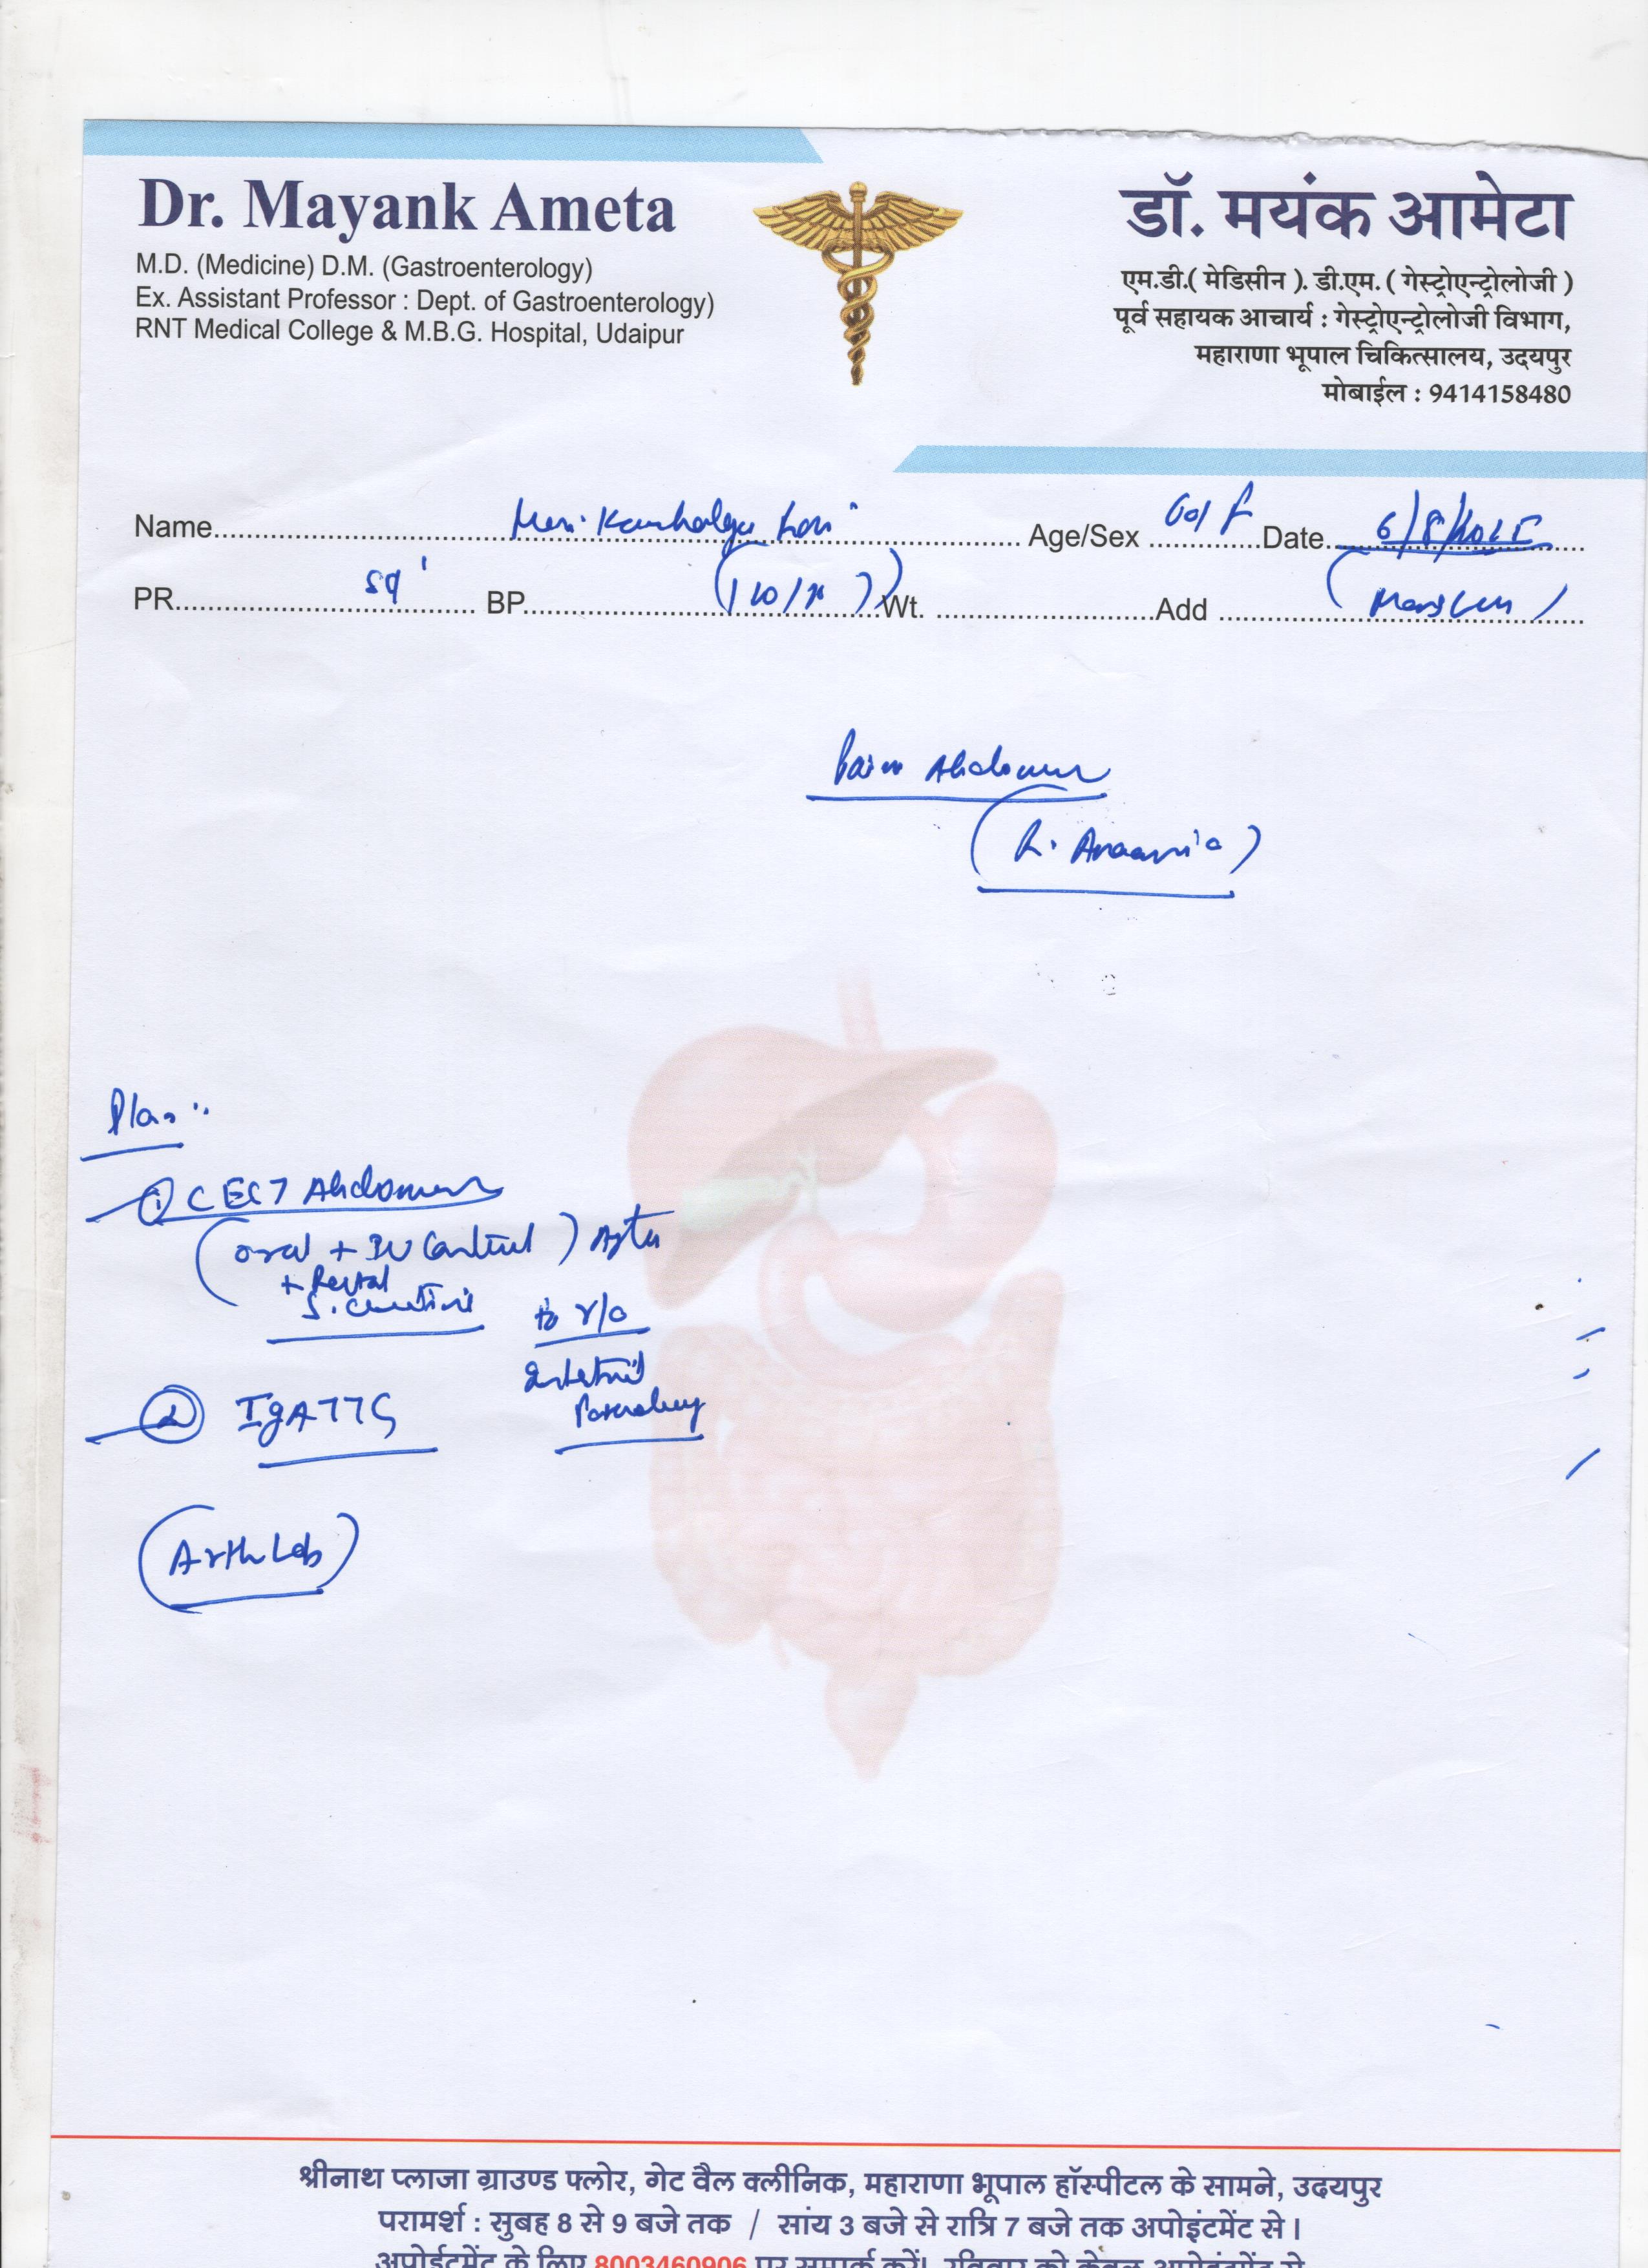 Dr. Mayank Ameta
M.D. (Medicine) D.M. (Gastroenterology)
Ex. Assistant Professor : Dept. of Gastroenterology)
RNT Medical College & M.B.G. Hospital, Udaipur
डॉ. मयंक आमेटा
एम.डी.( मेडिसीन ). डी.एम. ( गेस्ट्रोएन्ट्रोलोजी )
पूर्व सहायक आचार्य : गेस्ट्रोएन्ट्रोलोजी विभाग,
महाराणा भूपाल चिकित्सालय, उदयपुर
मोबाईल : 9414158480
Name Age/Sex 60/F Date 6/8/2025
PR BP Wt. Add
Pain Abdomen
(R. Anaemia)
Plan :
① CECT Abdomen
(oral + IV Contrast) After
+ Rectal
S. Creatinine
to r/o
Intestinal
Pathology
② IgA TTG
(Arth Lab)
श्रीनाथ प्लाजा ग्राउण्ड फ्लोर, गेट वैल क्लीनिक, महाराणा भूपाल हॉस्पीटल के सामने, उदयपुर
परामर्श : सुबह 8 से 9 बजे तक / सांय 3 बजे से रात्रि 7 बजे तक अपोइंटमेंट से ।
अपोईटमेंट के लिए 8003460906 पर सम्पर्क करें। रविवार को केवल अपोइंटमेंट से